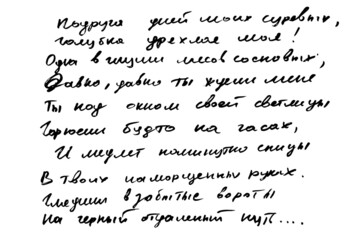 Подруга дней моих суровых,
голубка дряхлая моя!
Одна в глуши лесов сосновых,
Давно, давно ты ждёшь меня
Ты под окном своей светлицы
Горюешь будто на часах,
И медлят поминутно спицы
В твоих наморщенных руках.
Глядишь в забытые вороты
На черный отдаленный путь....